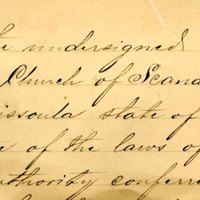 undersigned
Church of Scand
issoula state of
of the laws of
uthority conferre